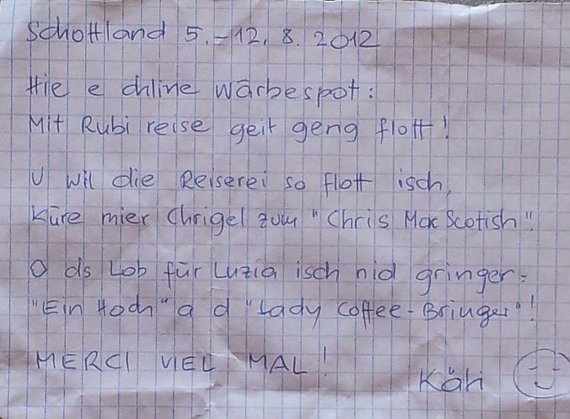 Schottland 5.-12. 8. 2012
Hie e chline Wärbespot:
Mit Rubi reise geit geng flott!
U wil die Reiserei so flott isch,
Küre mier Chrigel zum "Chris MacScotish".
O ds Lob für Luzia isch nid gringer:
"Ein Hoch" a d "Lady Coffee-Bringer"!
MERCI VIEL MAL!
Käti